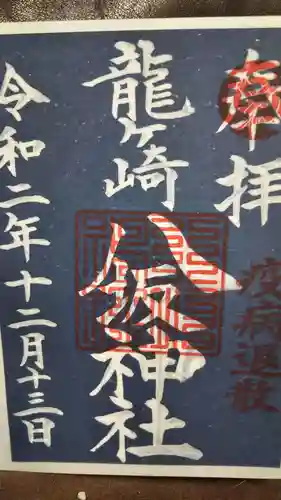 奉拝
疫病退散
龍ヶ崎八坂神社
令和二年十二月十三日